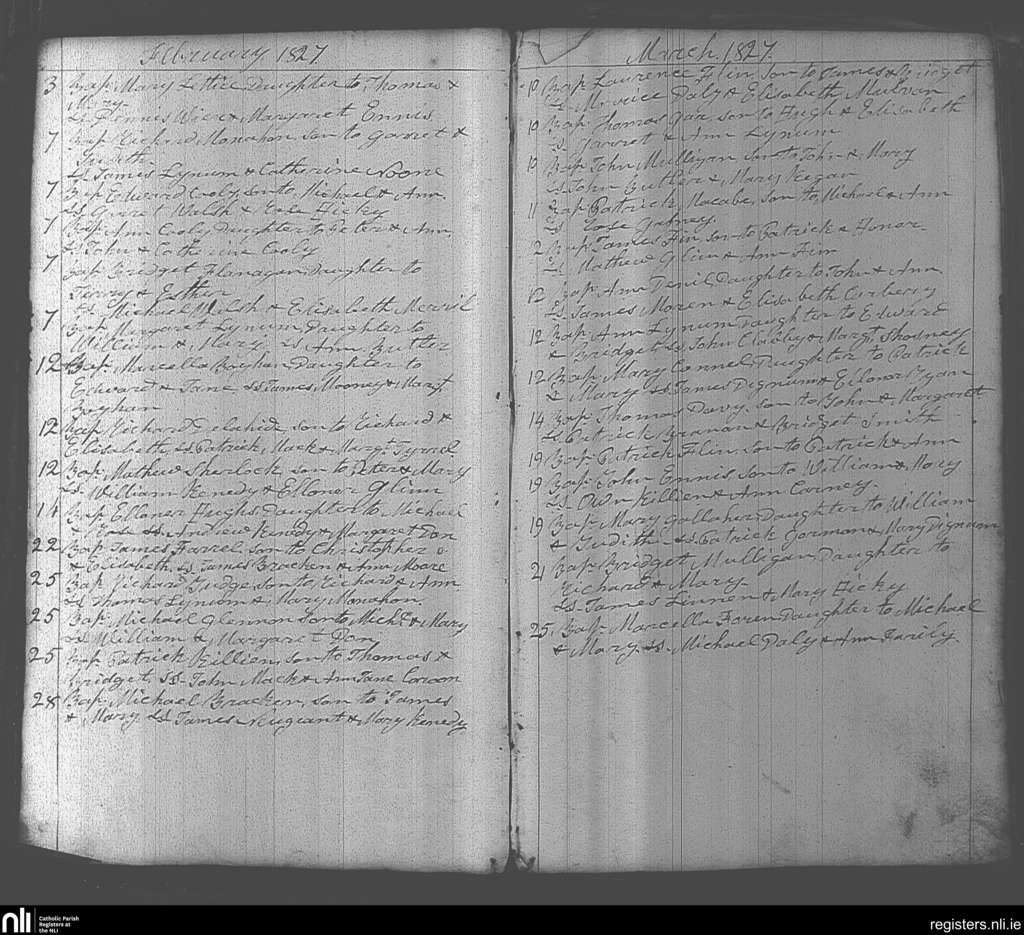 February 1827
3 Bap. Mary Lettice Daughter to Thomas &
Mary
Ss Dinnes Wier & Margaret Ennis
7 Bap. Richard Monahon son to Garret &
Judith
Ss James Lynum & Catherine Noone
7 Bap. Edward Cooly son to Michael & Ann
Ss Garret Welsh & Rose Hicky
7 Bap. Ann Cooly Daughter to Peter & Ann
Ss John & Catherine Cooly
7 Bap. Bridget Flanagan Daughter to
& Esther
Ss Michael Walsh & Elisabeth
7 Bap. Margaret Lynum Daughter to
William & Mary Ss Ann Butler
12 Bap. Marcella Boyhan Daughter to
Edward & Jane Ss James Mooney & Margt.
Boyhan
12 Bap. Richard Delehid son to Richard &
Elisabeth, Ss Patrick Mack & Margt. Tyrrel
12 Bap. Mathew Sherlock son to Peter & Mary
Ss William Kenedy & Elloner Glinn
11 Bap. Elloner Hughs Daughter to Michael
& Rose Ss Andrew Kenedy & Margaret Don
22 Bap. James Farrel son to Christopher
& Elisabeth, Ss James Bracken & Ann Moore
25 Bap. Richard Judge, son to Richard & Ann
Ss Thomas Lynum & Mary Monahon
25 Bap. Michael Glennon son to Michl. & Mary
Ss William & Margaret Don
25 Bap. Patrick Killien, son to Thomas &
Bridget, Ss John Mack & Ann Jane Coroon
28 Bap. Michael Bracken, son to James
& Mary Ss James Nugeant & Mary Kenedy
March 1827
10 Bap. Laurence Flin, son to James & Bridget
Ss Daly & Elisabeth Mulvan
10 Bap. Thomas son to Hugh & Elisabeth
Ss Garret & Ann Lynum
10 Bap. John Mulligan son to John & Mary
Ss John Butler & Mary Kegan
11 Bap. Patrick Macabe, son to Michael & Ann
Ss Rose Gafney
2 Bap. James Fin son to Patrick & Honor
Ss Mathew Glinn & Ann Fin
12 Bap. Ann Denil Daughter to John & Ann
Ss James Moren & Elisabeth Corberry
12 Bap. Ann Lynum Daughter to Edward
& Bridget Ss John Clabby & Margt. Shosney
12 Bap. Mary Connel Daughter to Patrick
& Mary Ss James Dignum & Elonor Ryan
14 Bap. Thomas Davy son to John & Margaret
Ss Patrick Branan & Bridget Smith
19 Bap. Patrick Flin, son to Patrick & Ann
19 Bap. John Ennis, son to William & Mary
Ss Own Killien & Ann Carney
19 Bap. Mary Gallaher Daughter to William
& Judith Ss Patrick Gorman & Mary Dignum
21 Bap. Bridget Mulligan Daughter to
Richard & Mary
Ss James Linnen & Mary Hicky
25 Bap. Marcella Foren Daughter to Michael
& Mary, Ss Michael Daly & Ann Farily
nli
Catholic Parish
Registers at
the NLI
registers.nli.ie